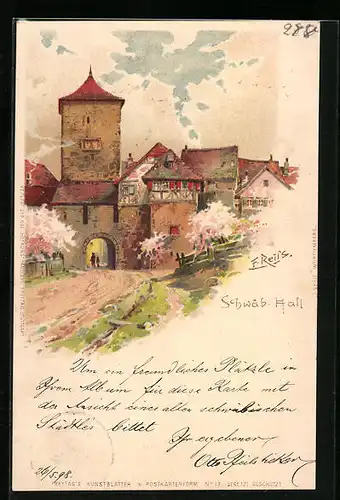 288
F. Reiss.
Schwäb. Hall
Um ein freundliches Plätzle in
Ihrem Album für diese Karte mit
der Ansicht eines alten schwäbischen
Städtles bittet
Ihr ergebener
Otto
26/5 98.
KUNSTBLÄTTER
POSTKARTENFORM. No 17. GESETZL. GESCHÜTZT.